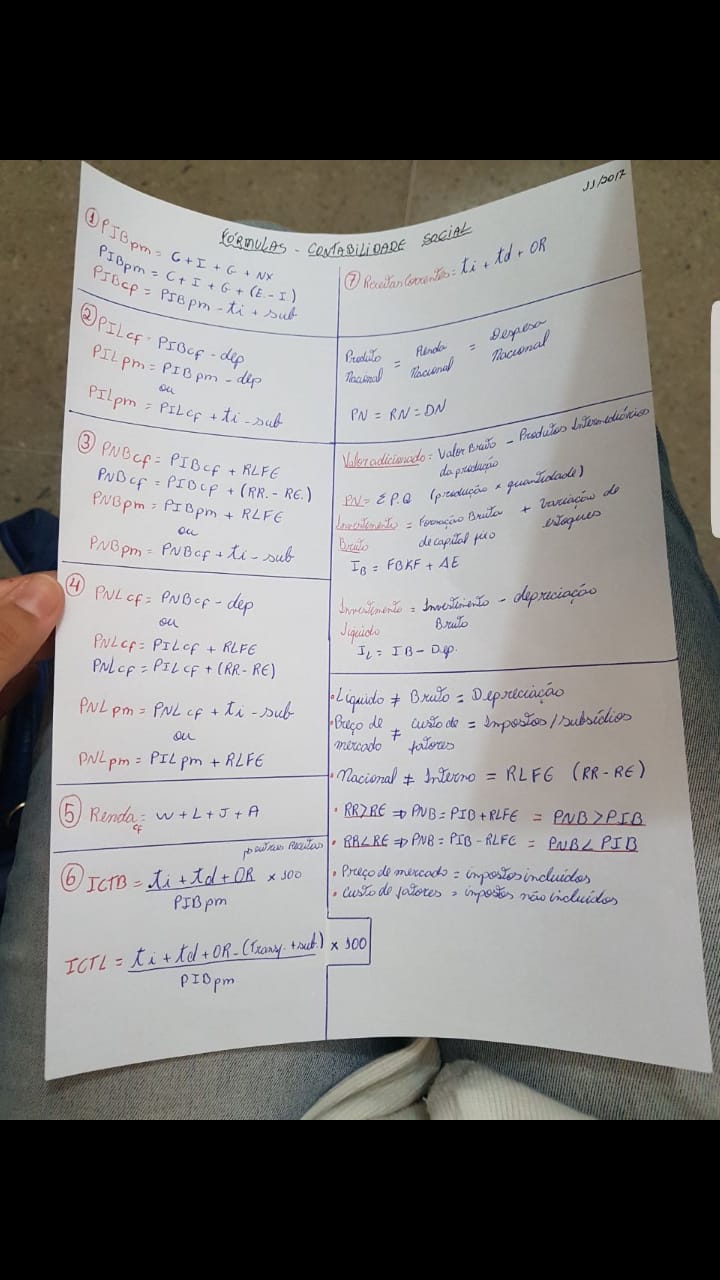 11/2017
FÓRMULAS - CONTABILIDADE SOCIAL
① PIBpm = C + I + G + NX
PIBpm = C + I + G + (E. - I.)
PIBcp = PIBpm - ti + sub
② PILcf = PIBcf - dep
PILpm = PIBpm - dep
ou
PILpm = PILcf + ti - sub
③ PNBcf = PIBcf + RLFE
PNBcf = PIBcf + (RR. - RE.)
PNBpm = PIBpm + RLFE
ou
PNBpm = PNBcf + ti - sub
④ PNLcf = PNBcf - dep
ou
PNLcf = PILcf + RLFE
PNLcf = PILcf + (RR - RE)
PNLpm = PNLcf + ti - sub
ou
PNLpm = PILpm + RLFE
⑤ Renda cf = W + L + J + A
outras receitas
⑥ ICTB = ti + td + OR × 100
PIBpm
ICTL = ti + td + OR - (Transf. + sub.) × 100
PIBpm
⑦ Receitas Correntes = ti + td + OR
Produto = Renda = Despesa
Nacional Nacional Nacional
PN = RN = DN
Valor adicionado = Valor Bruto - Produtos Intermediários
da produção
PN = Σ P.Q (produção × quantidade)
Investimento = Formação Bruta + Variação de
Bruto de capital fixo estoques
IB = FBKF + ΔE
Investimento = Investimento - depreciação
líquido Bruto
IL = IB - Dep.
• Líquido ≠ Bruto = Depreciação
• Preço de ≠ custo de = Impostos/subsídios
mercado fatores
• Nacional ≠ Interno = RLFE (RR - RE)
• RR>RE ⇒ PNB = PIB + RLFE = PNB > PIB
• RR<RE ⇒ PNB = PIB - RLFE = PNB < PIB
• Preço de mercado = impostos incluídos
• Custo de fatores = impostos não incluídos